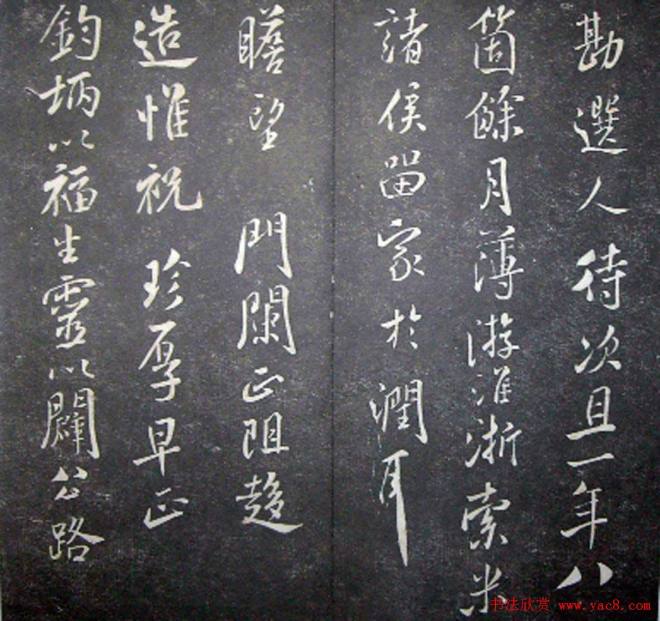 勘選人待次且一年八
箇餘月薄游淮浙索米
諸侯畱家於潤耳
瞻望　門闌正阻趍
造惟祝　珍厚早正
鈞柄以福生靈以闢公路
书法欣赏 www.yac8.com